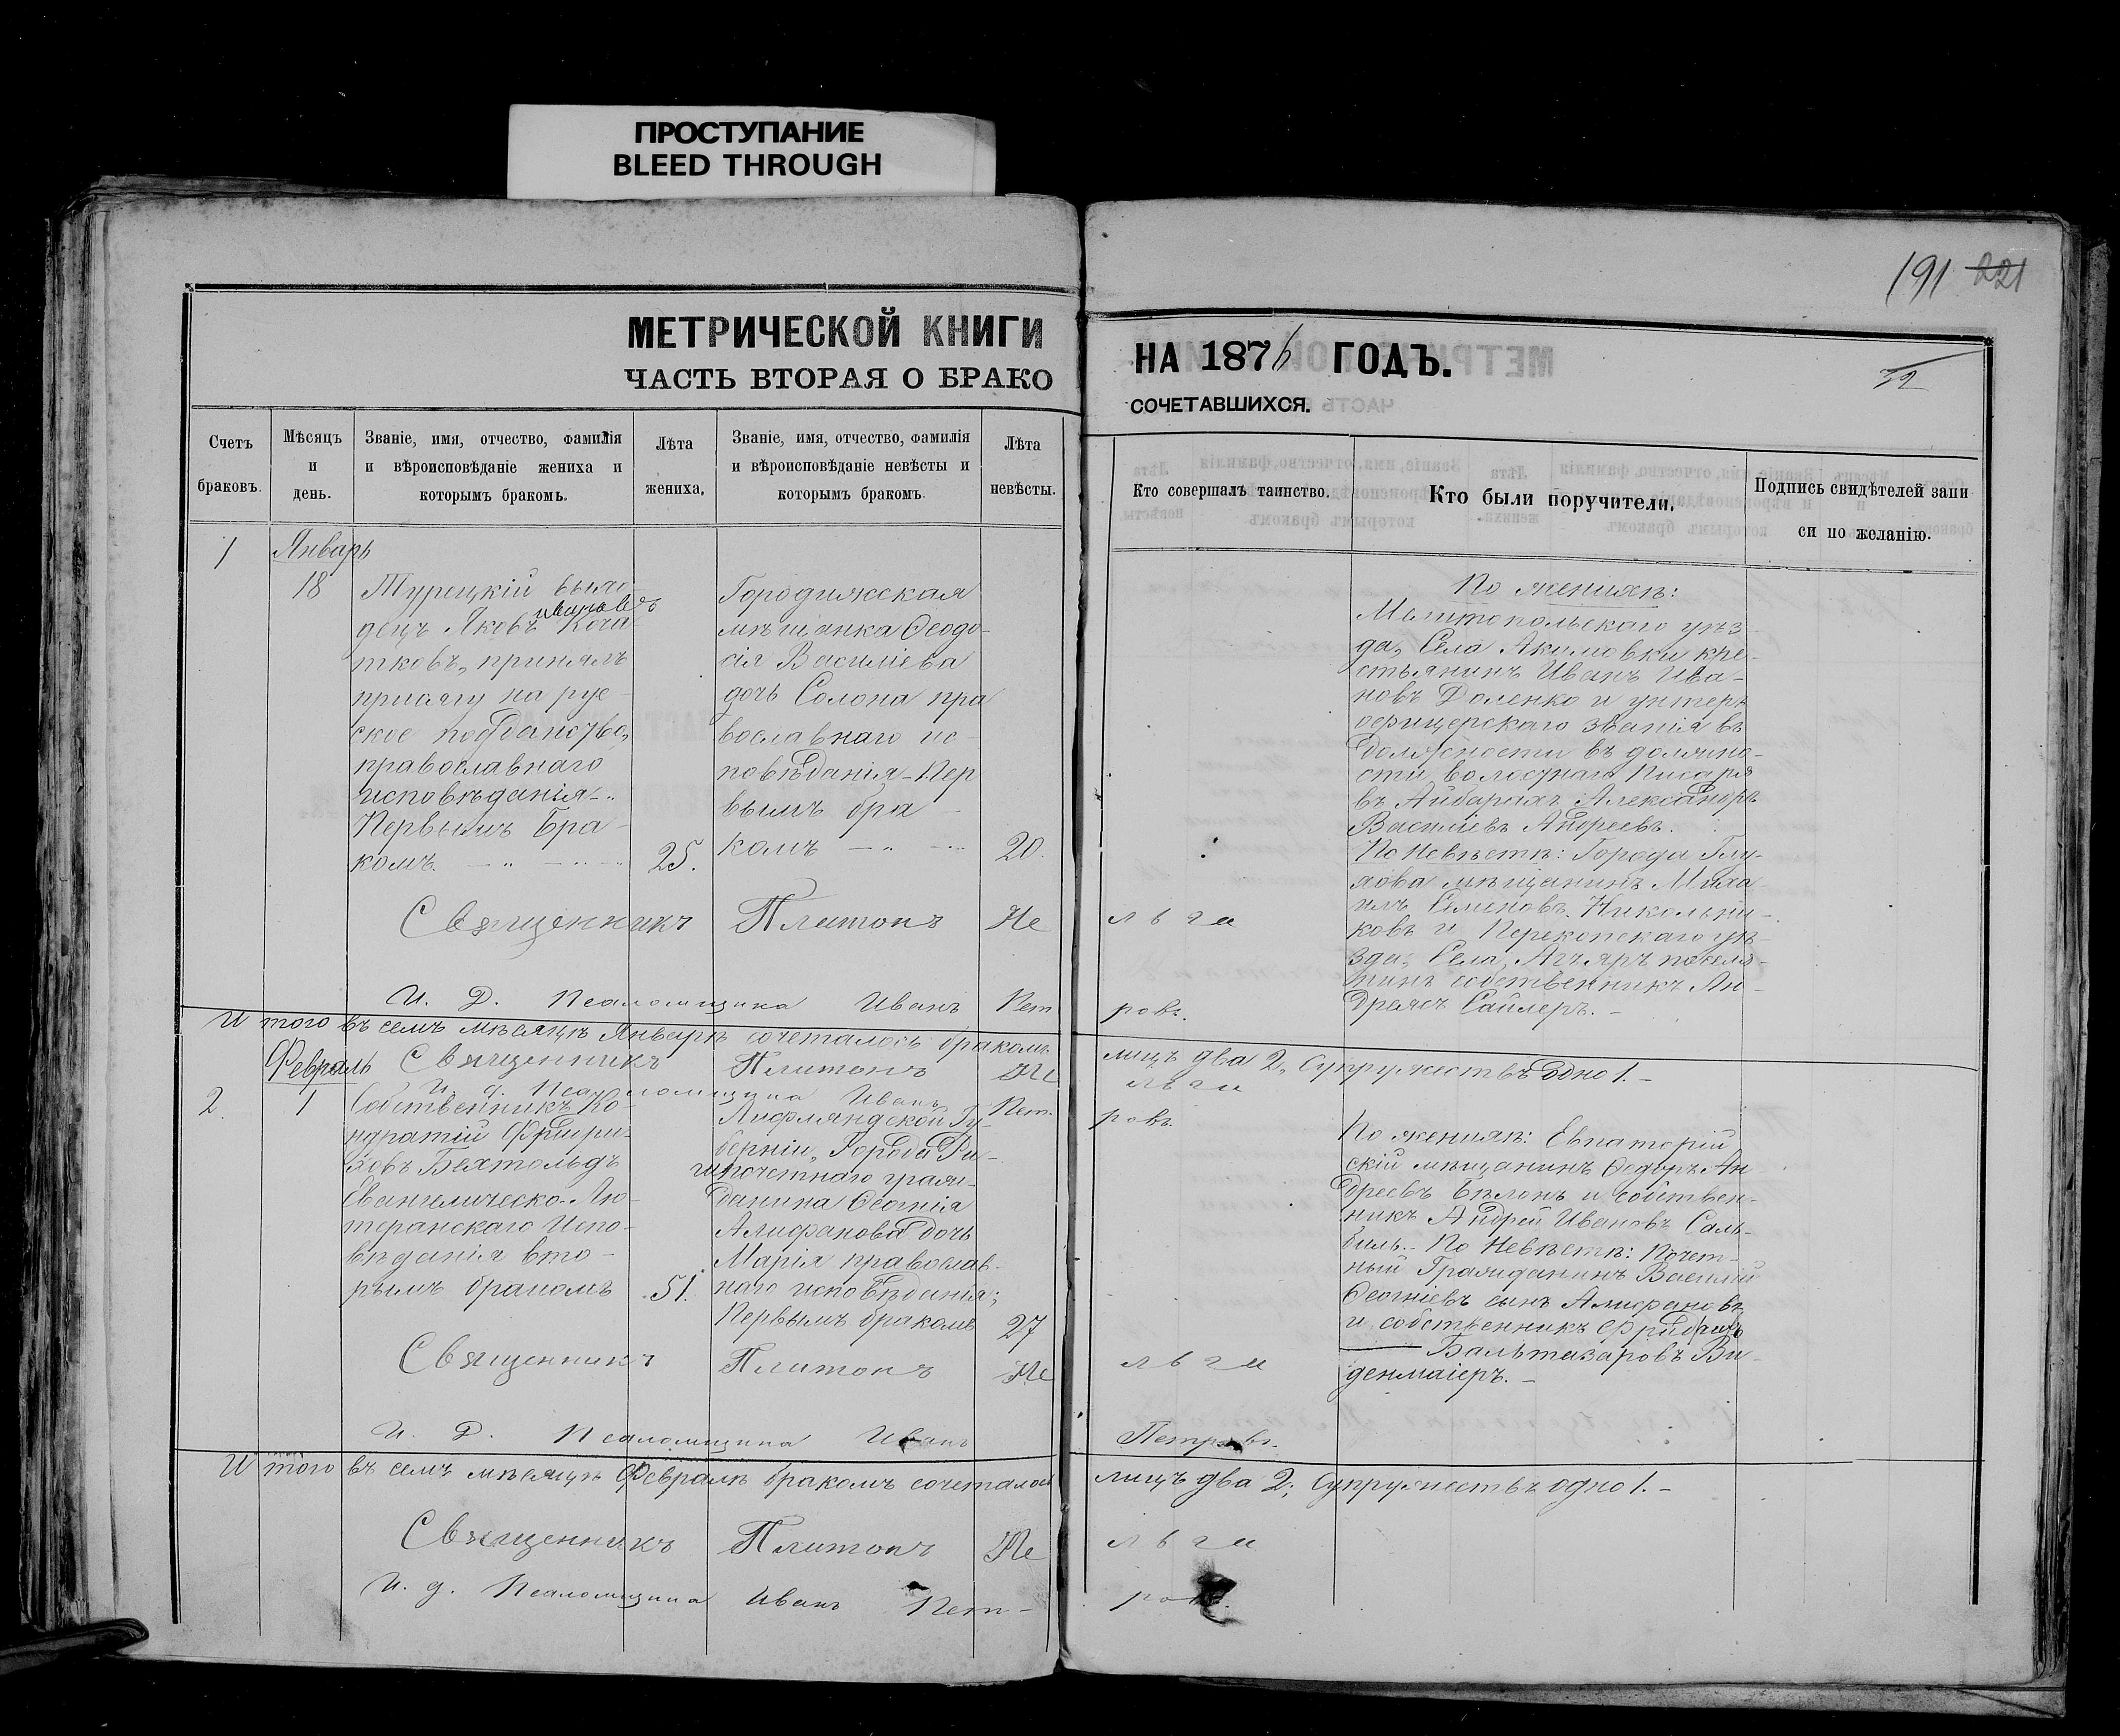 ПРОСТУПАНИЕ
BLEED THROUGH
191 221
МЕТРИЧЕСКОЙ КНИГИ
НА 1876 ГОДЪ.
32
ЧАСТЬ ВТОРАЯ О БРАКО
СОЧЕТАВШИХСЯ.
Счетъ
браковъ.
Мѣсяцъ
и
день.
Званіе, имя, отчество, фамилія
и вѣроисповѣданіе жениха и
которымъ бракомъ.
Лѣта
жениха.
Званіе, имя, отчество, фамилія
и вѣроисповѣданіе невѣсты и
которымъ бракомъ.
Лѣта
невѣсты.
Кто совершалъ таинство.
Кто были поручители.
Подпись свидѣтелей запи
си по желанію.
1
Январь
18
Турецкій выхо
децъ Яковъ Ивановъ Коча
тковъ, принялъ
присягу на рус-
ское подданство,
православнаго
исповѣданія
Первымъ бра-
комъ.
25.
Городижская
мѣщанка Ѳеодо-
сія Василіева
дочь Солона пра
вославнаго ис-
повѣданія - Пер
вымъ бра-
комъ
20.
По женихѣ:
Мелитопольскаго уѣз-
да, Села Акимовки кре-
стьянинъ Иванъ Ива-
новъ Доленко и унтеръ
офицерскаго званія въ
должности въ должно-
сти волостнаго Писаря
въ Айбарахъ Александръ
Василіевъ Андреевъ.
По Невѣстѣ: Города Глу-
хова мѣщанинъ Миха-
илъ Николь
ковъ и Перекопскаго уѣ-
зда, Села поселя-
нинъ собственникъ Ан-
дреасъ Сайлеръ. -
Священникъ Платонъ
И. Д. Псаломщика Иванъ Пет
ровъ.
Итого въ семъ мѣсяцѣ Январѣ сочеталось бракомъ
лицъ два 2, Супружествъ одно 1. -
Священникъ Платонъ
И. д. Псаломщика Иванъ Пет.
ровъ.
Февраль
2.
1
Собственникъ Ко-
ндратій Фридри-
ховъ Бехтольдъ
Евангелическо-Лю-
теранскаго Испо-
вѣданія вто-
рымъ бракомъ
51.
Лифляндской Гу-
берніи, Города Ри-
ги почетнаго граж-
данина Ѳеогнія
Алифанова дочь
Марія православ-
наго исповѣданія;
Первымъ бракомъ
27
По женихѣ: Евпаторій
скій мѣщанинъ Ѳедоръ Ан
дреевъ Бѣлонь и собствен-
никъ Андрей Ивановъ Саль-
биль. - По Невѣстѣ: Почет-
ный Гражданинъ Василій
Ѳеогніевъ сынъ Алифановъ,
и собственникъ Фридрихъ
Бальтазаровъ Ви-
денмаіеръ. -
Священникъ Платонъ
И. Д. Псаломщика Иванъ
Петровъ.
Итого въ семъ мѣсяцѣ Февралѣ бракомъ сочеталось
лицъ два 2; супружествъ одно 1. -
Священникъ Платонъ
И. д. Псаломщика Иванъ Пет-
ровъ.